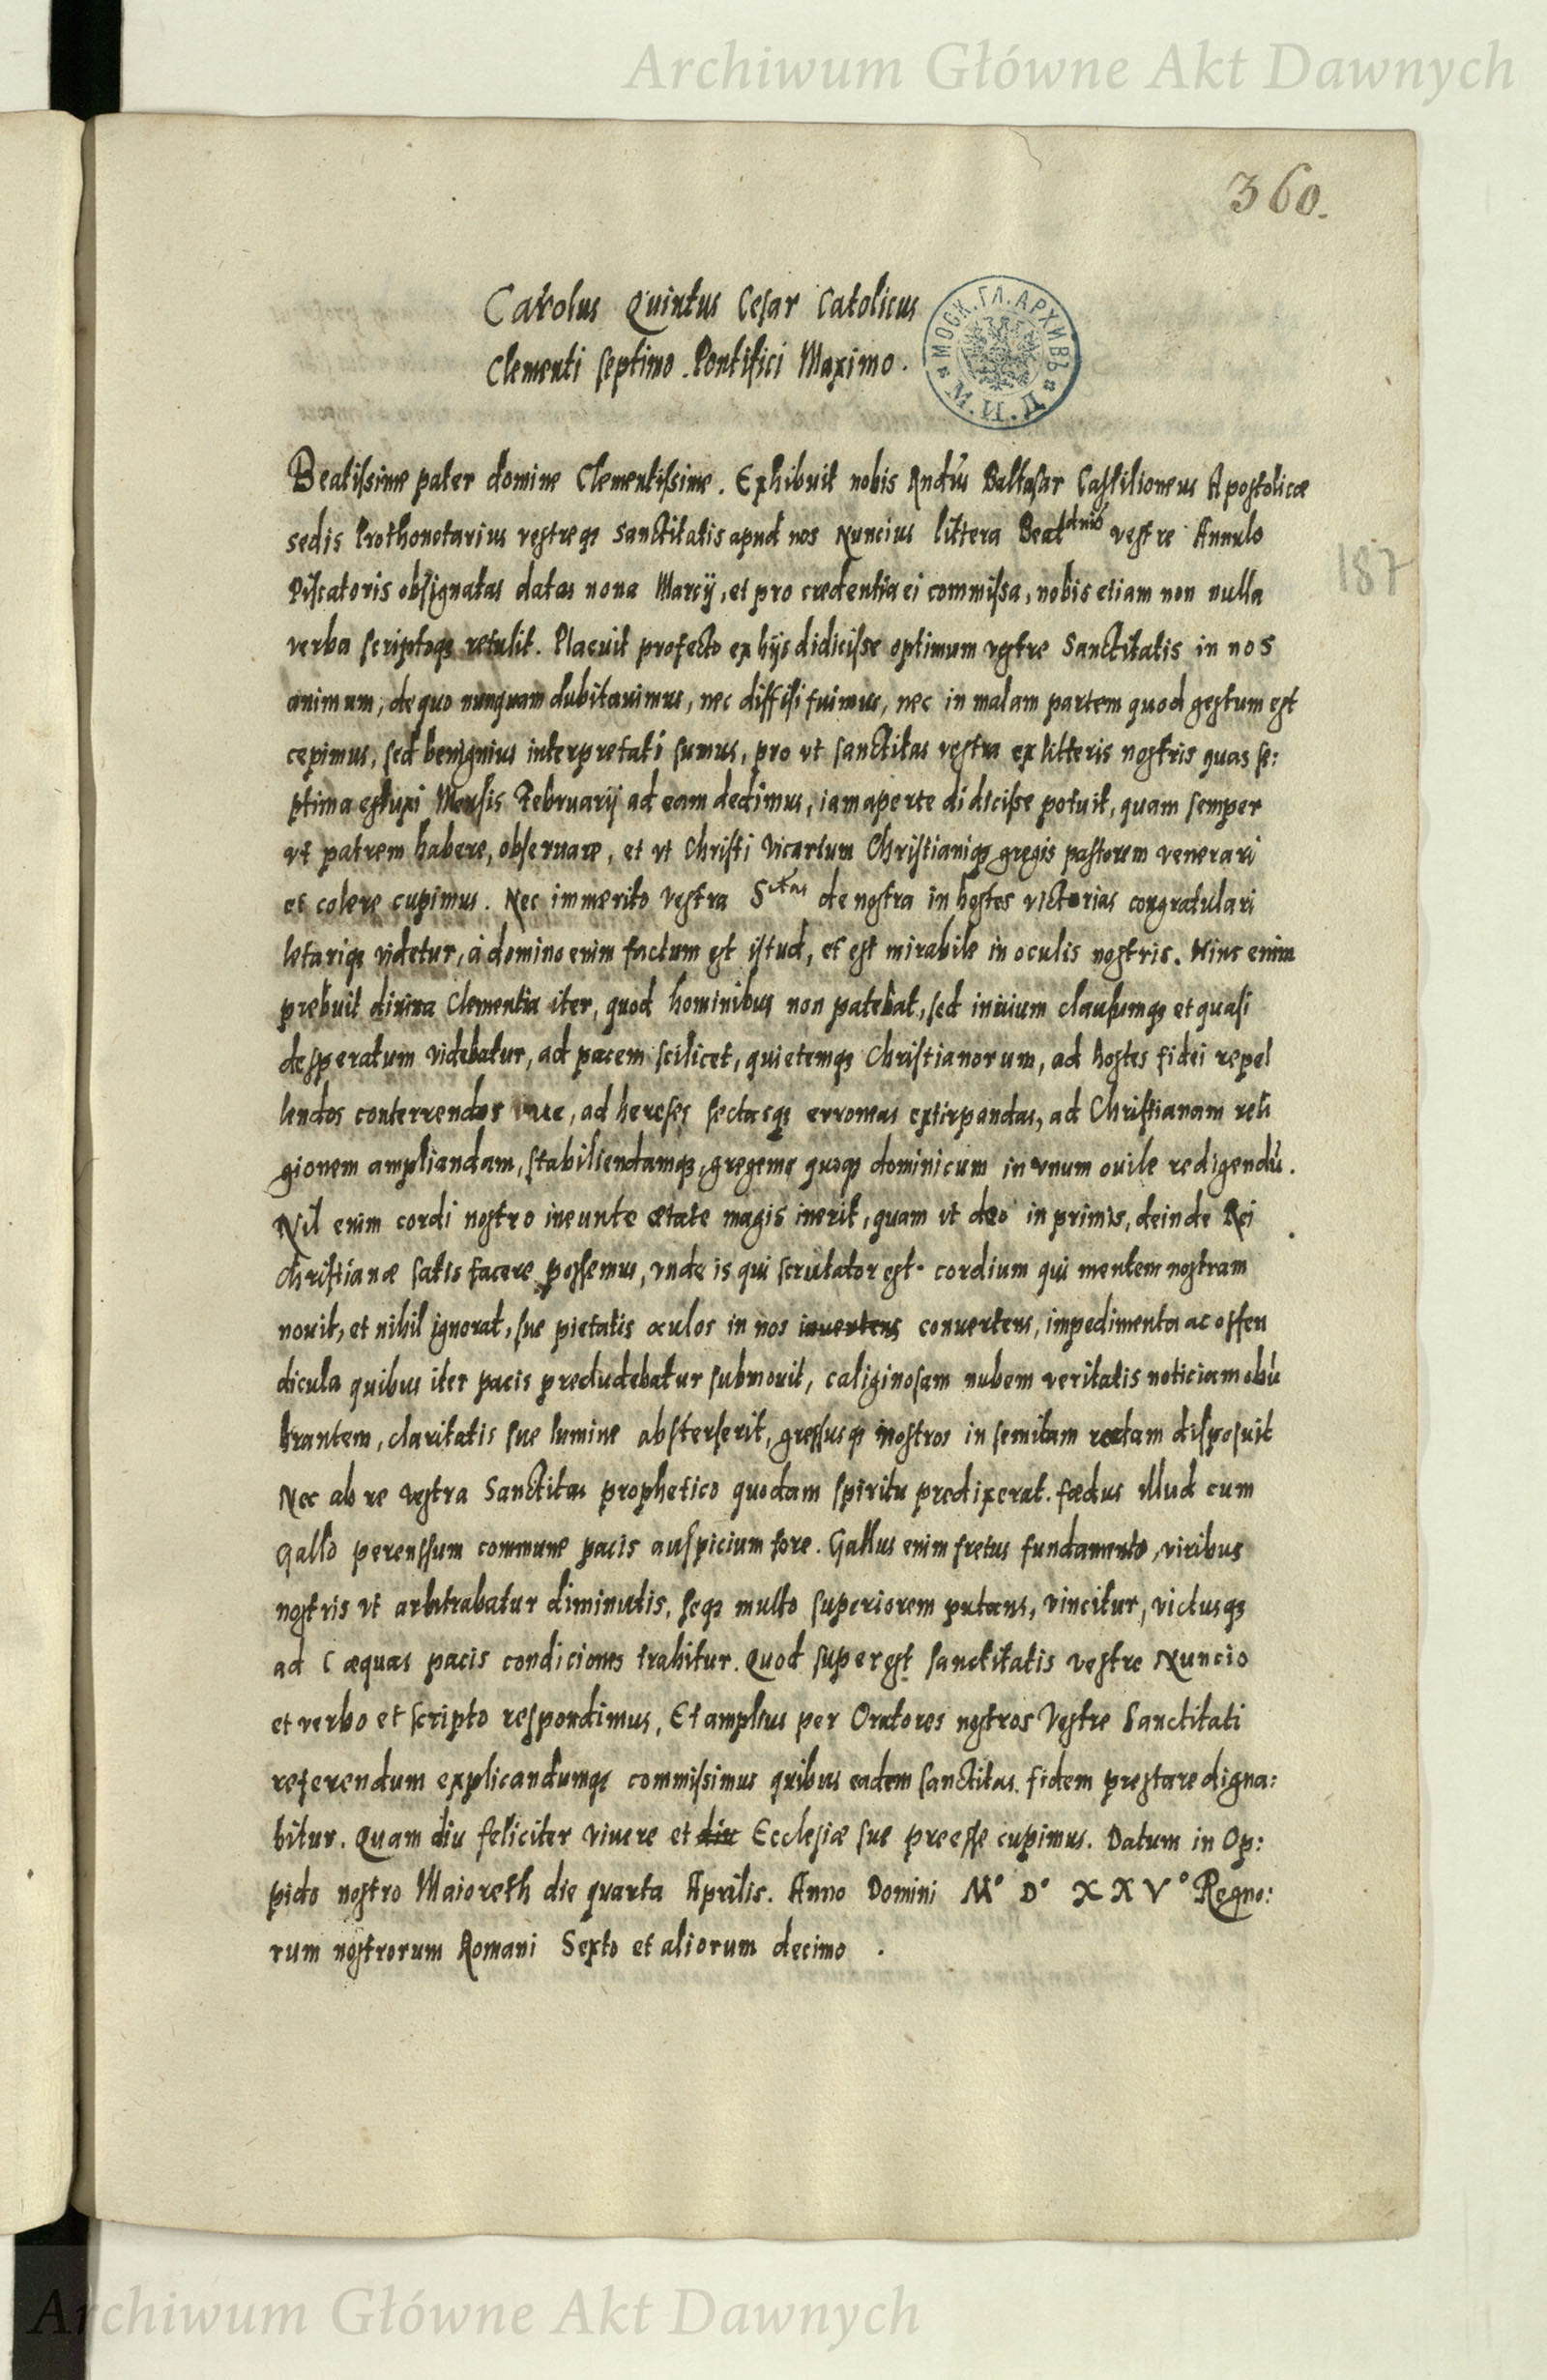 Archiwum Główne Akt Dawnych
360.
Carolus Quintus Cesar Catolicus
Clementi septimo Pontifici Maximo.
МОСК. ГЛ. АРХИВЪ М.И.Д.
Beatissime pater domine Clementissime. Exhibuit nobis Baltasar Castilioneus Apostolicæ
sedis Prothonotarius vestreqȝ Sanctitatis apud nos Nuncius littera Beatdnis vestre Annulo
187
Piscatoris obsignatas datas nona Marcij, et pro credentia ei commissa, nobis etiam non nulla
verba scriptoqȝ retulit. Placuit profecto ex hijs didicisse optimum vestre Sanctitatis in nos
animum, de quo nunquam dubitauimus, nec diffisi fuimus, nec in malam partem quod gestum est
cepimus, sed benignius interpretati sumus, pro vt sanctitas vestra ex litteris nostris quas se:
ptima Mensis Februarij ad eam dedimus, iam aperte didicisse potuit, quam semper
vt patrem habere, obseruare, et vt Christi Vicarium Christianiqȝ gregis pastorem venerari
et colere cupimus. Nec immerito vestra Sctas de nostra in hostes victorias congratulari
letariqȝ videtur, à domino enim factum est istud, et est mirabile in oculis nostris. Hinc enim
prebuit diuina Clementia iter, quod hominibus non patebat, sed inuium clausumqȝ et quasi
desperatum videbatur, ad pacem scilicet, quietemqȝ Christianorum, ad hostes fidei repel
lendos conterrendos ue, ad hereses sectasqȝ erroneas extirpandas, ad Christianam reli
gionem ampliandam, stabiliendamqȝ, gregemqȝ dominicum in vnum ouile redigendū.
Nil enim cordi nostro ineunte ætate magis inerit, quam vt deo in primis, deinde Rei
Christianæ satis facere possemus, vnde is qui scrutator est cordium qui mentem nostram
nouit, et nihil ignorat, sue pietatis oculos in nos inuertens conuertens, impedimenta ac offen
dicula quibus iter pacis precludebatur submouit, caliginosam nubem veritatis noticiam obū
brantem, claritatis sue lumine absterserit, gressusqȝ nostros in semitam rectam disposuit
Nec ab re vestra Sanctitas prophetico quodam spiritu predixerat. fœdus illud cum
Gallo percussum commune pacis auspicium fore. Gallus enim fretus fundamento, viribus
nostris vt arbitrabatur diminutis, seqȝ multo superiorem putans, vincitur, victusqȝ
ad æquas pacis condiciones trahitur. Quod superest sanctitatis vestre Nuncio
et verbo et scripto respondimus, Et amplius per Oratores nostros Vestre Sanctitati
referendum explicandumqȝ commissimus quibus eadem sanctitas fidem prestare digna:
bitur. Quam diu feliciter viuere et diu Ecclesiæ sue preesse cupimus. Datum in Op:
pido nostro Maioreth die quarta Aprilis. Anno Domini M° D° XXV° Regno:
rum nostrorum Romani Sexto et aliorum decimo.
Archiwum Główne Akt Dawnych